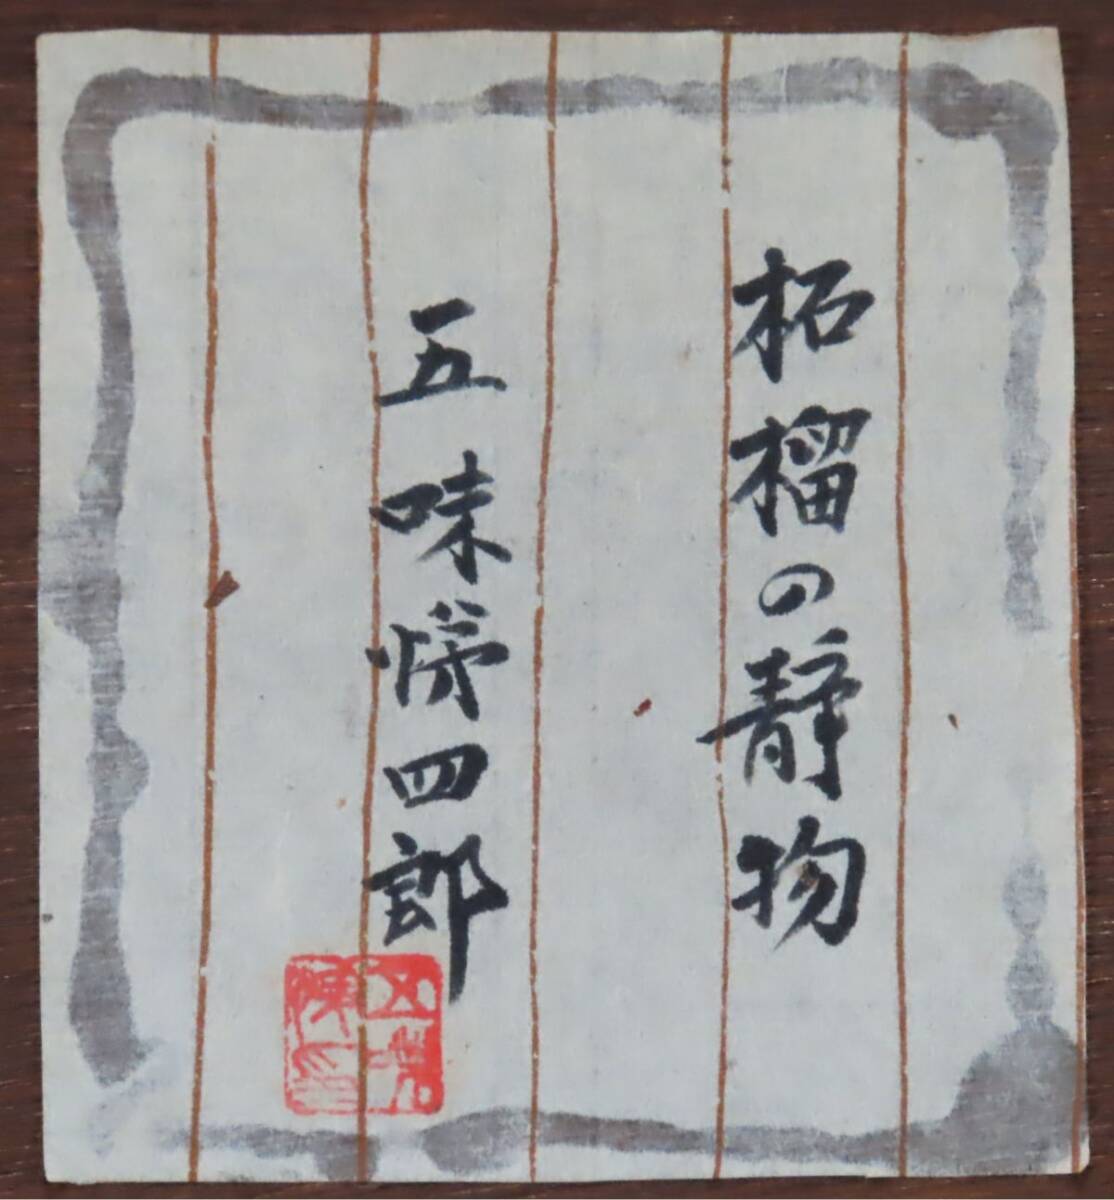 柘榴の静物
五味悌四郎